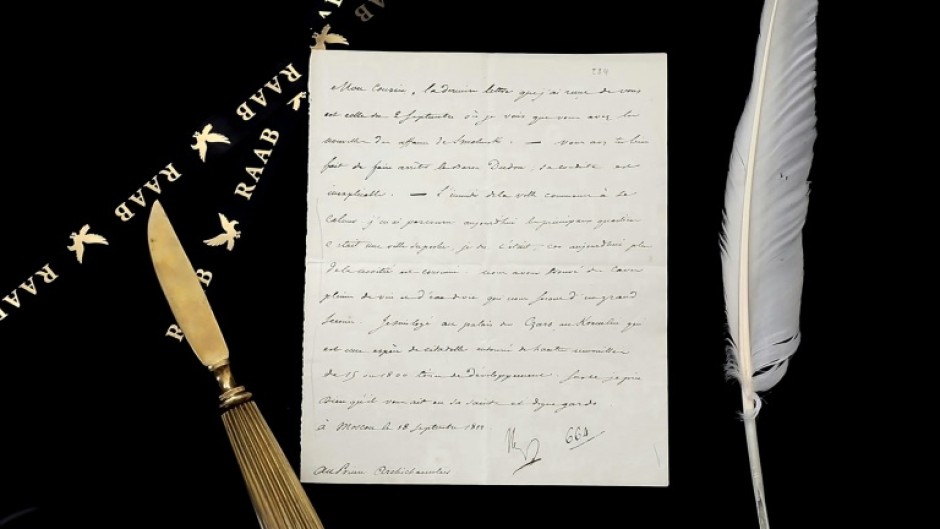 RAAB
RAAB
RAAB
RAAB
RAA
B
284
Mon Cousin, la dernière lettre que j'ai reçue de vous
est celle du 2 Septembre où je vois que vous avez les
nouvelles des affaires de Smolensk. — vous avez très bien
fait de faire arrêter le Baron Dudon, sa conduite est
inexplicable. — L'incendie de la ville commence à se
calmer, j'ai parcouru aujourd'hui les principaux quartiers
C'était une ville superbe, je dis c'était, car aujourd'hui plus
de la moitié est consumée. nous avons trouvé des caves
pleines de vin et d'eau de vie qui nous seront d'un grand
secours. Je suis logé au palais des Czars au Kremlin qui
est une espèce de citadelle entourée de hautes murailles
de 15 à 1800 toises de développement. Sur ce je prie
Dieu qu'il vous ait en sa sainte et digne garde.
à Moscou le 18 septembre 1812
664
Au Prince Archichancelier